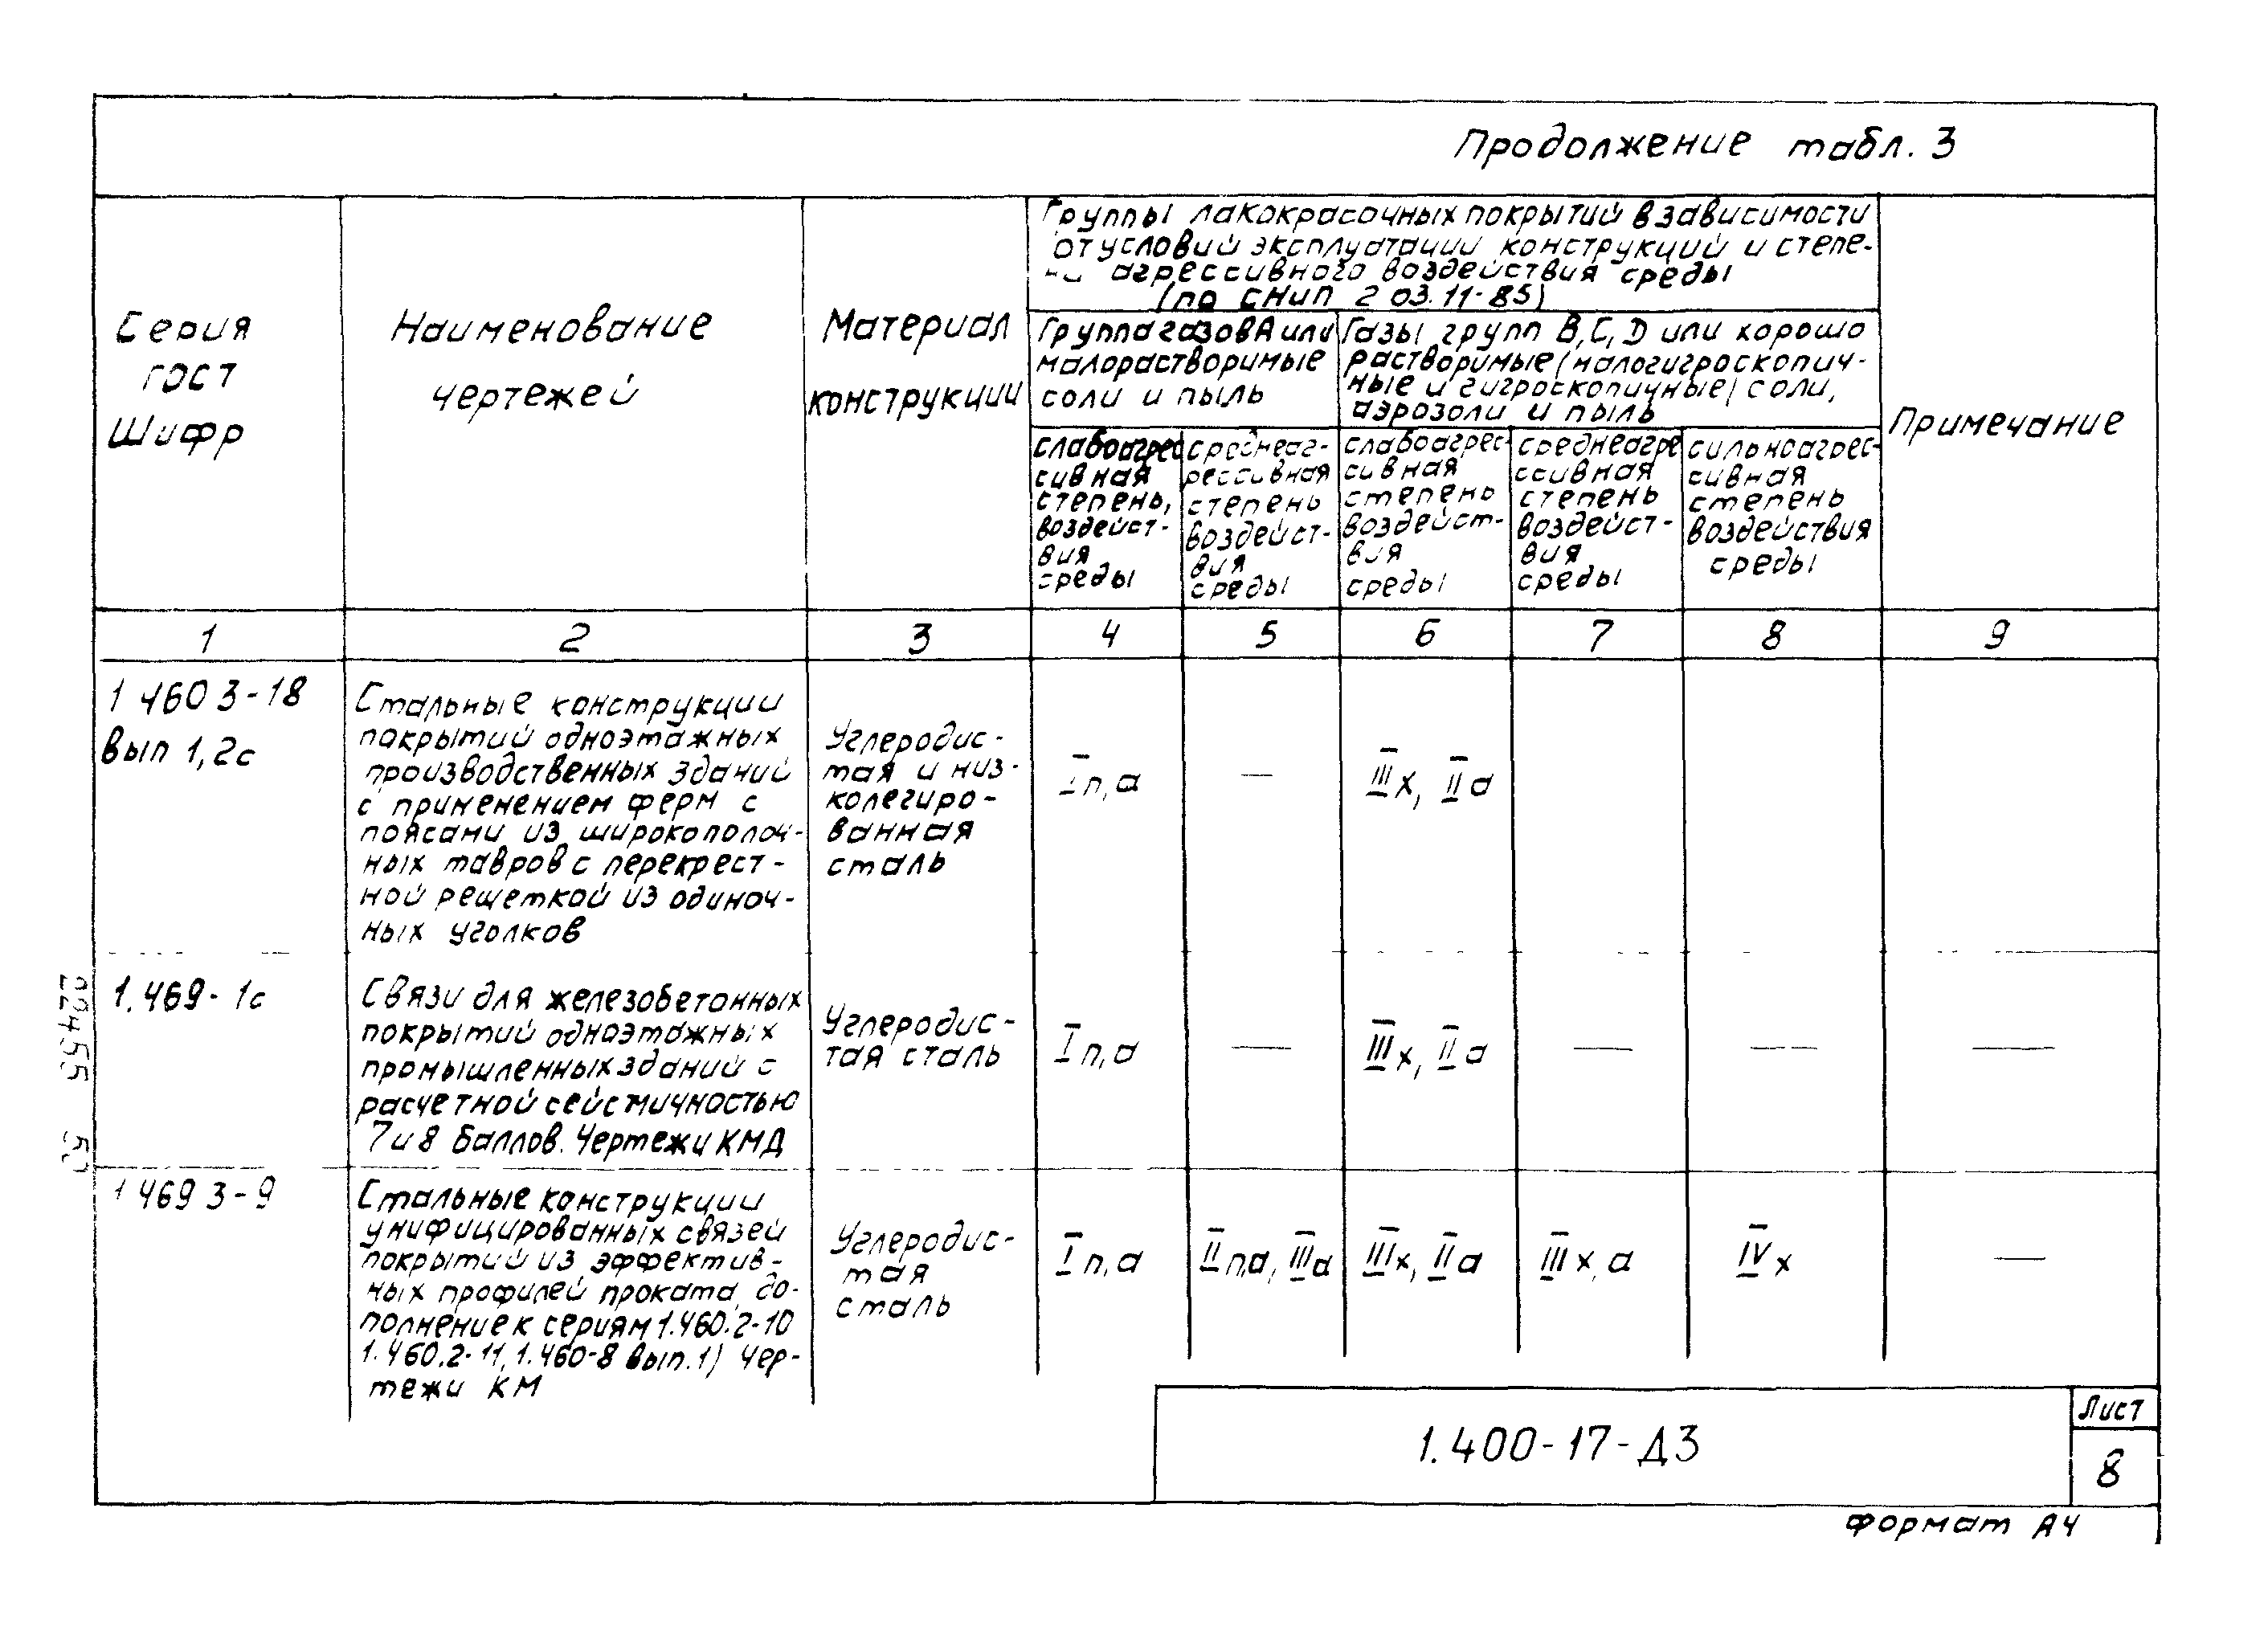 Продолжение табл. 3
Серия
ГОСТ
Шифр
Наименование
чертежей
Материал
конструкции
Группы лакокрасочных покрытий в зависимости
от условий эксплуатации конструкций и степе-
ни агрессивного воздействия среды
(по СНиП 2 03.11-85)
Группа газов А или
малорастворимые
соли и пыль
Газы групп В, С, D или хорошо
растворимые (малогигроскопич-
ные и гигроскопичные) соли,
аэрозоли и пыль
слабоагрес
сивная
степень,
воздейст-
вия
среды
среднеаг-
рессивная
степень
воздейст-
вия
среды
слабоагрес-
сивная
степень
воздейст-
вия
среды
среднеагре
ссивная
степень
воздейст-
вия
среды
сильноагрес-
сивная
степень
воздействия
среды
Примечание
1 2 3 4 5 6 7 8 9
1 460 3-18
Вып 1, 2с
Стальные конструкции
покрытий одноэтажных
производственных зданий
с применением ферм с
поясами из широкополоч-
ных тавров с перекрест-
ной решеткой из одиноч-
ных уголков
Углеродис-
тая и низ-
колегиро-
ванная
сталь
I п, а
—
III х, II а
1.469-1с
Связи для железобетонных
покрытий одноэтажных
промышленных зданий с
расчетной сейсмичностью
7 и 8 баллов. Чертежи КМД
Углеродис-
тая сталь
I п, а
—
III х, II а
—
—
—
1 469 3-9
Стальные конструкции
унифицированных связей
покрытий из эффектив-
ных профилей проката, до-
полнение к сериям 1.460.2-10
1.460.2-11, 1.460-8 вып.1) Чер-
тежи КМ
Углеродис-
тая
сталь
I п, а
II п,а, III а
III х, II а
III х, а
IV х
—
22455 52
1.400-17-Д3
Лист
8
Формат А4